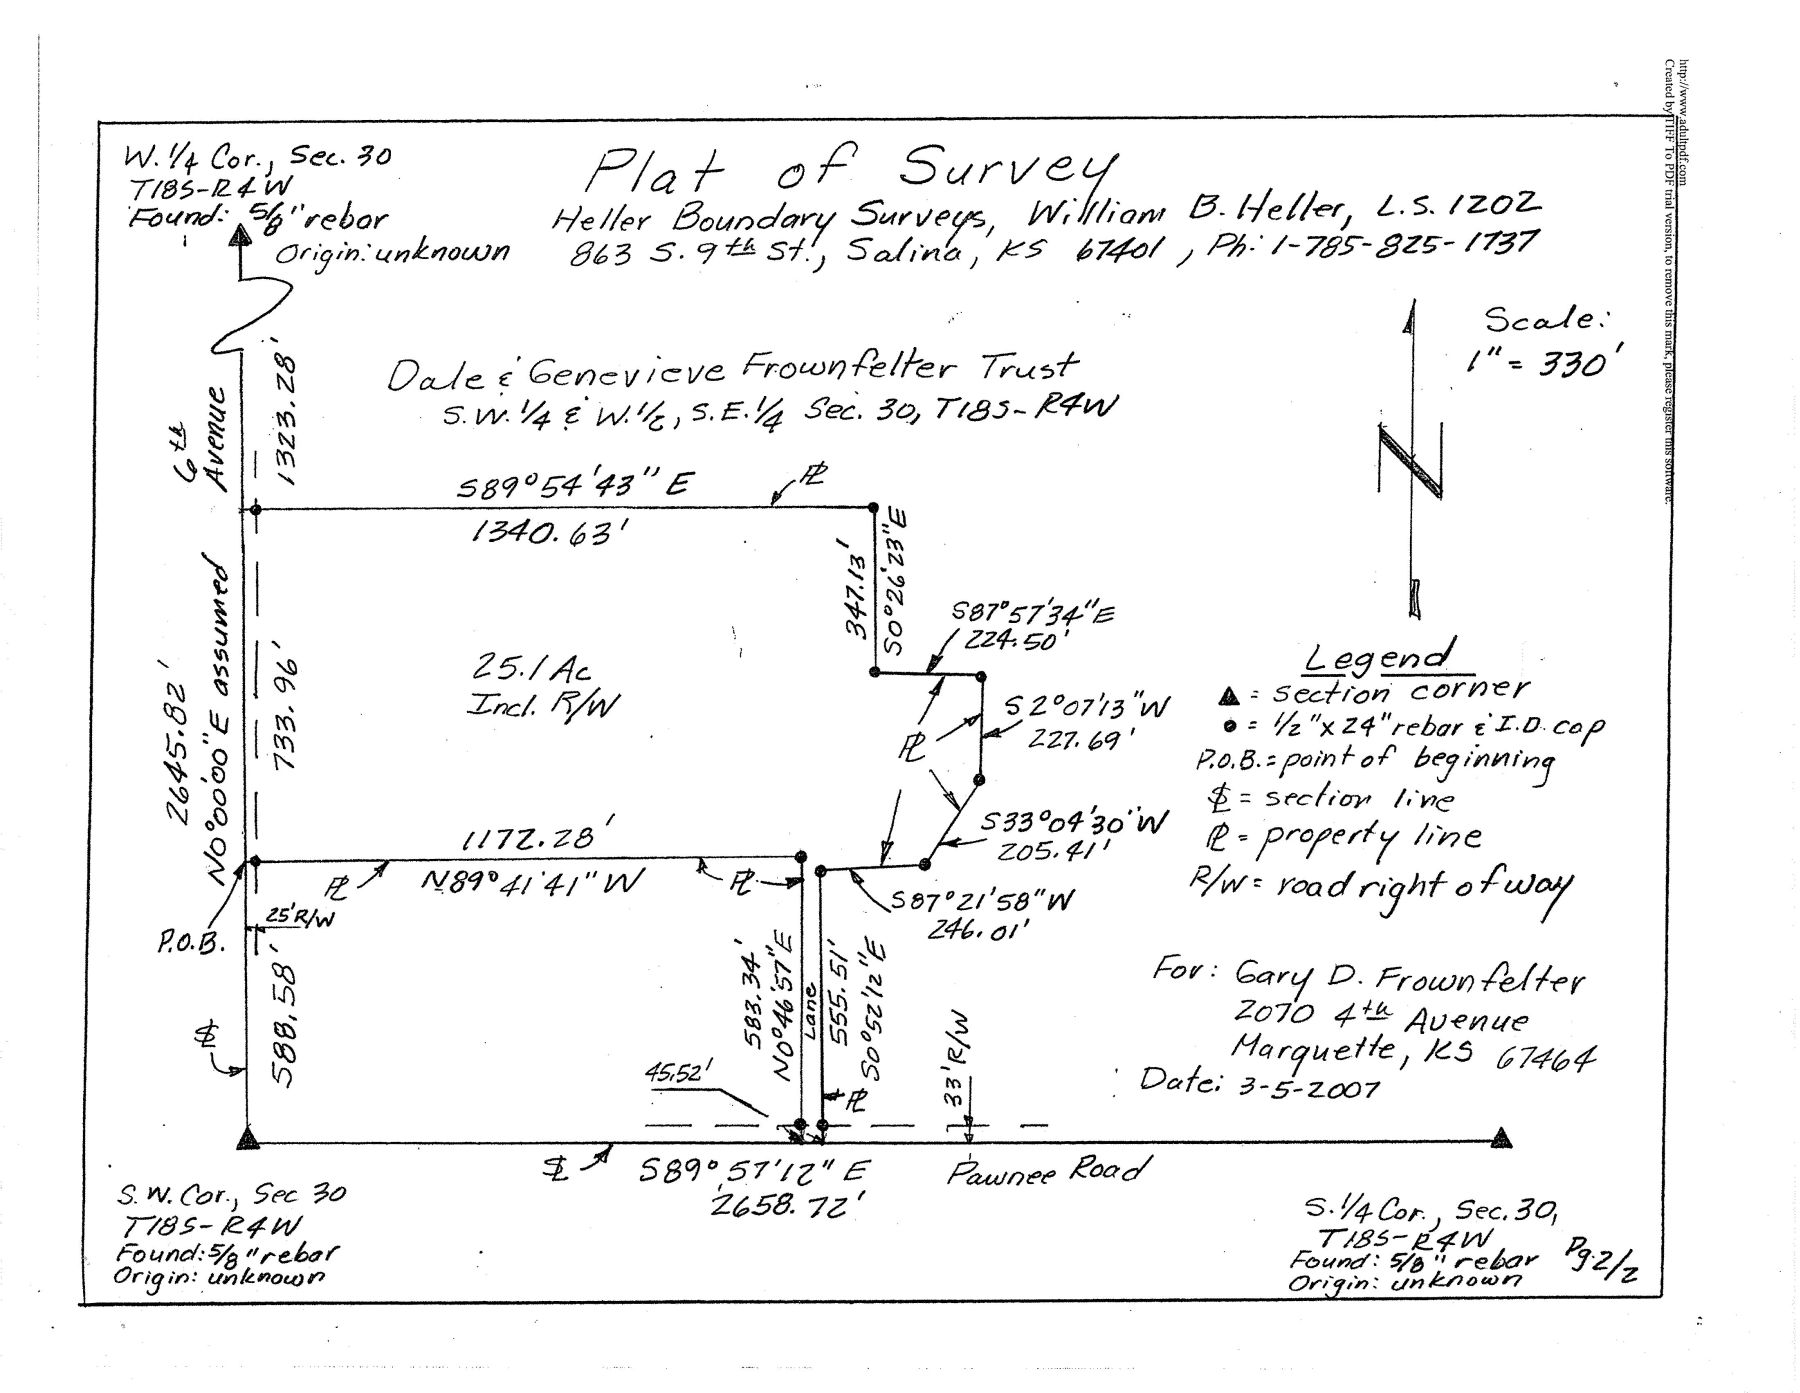 http://www.adultpdf.com
Created by TIFF To PDF trial version, to remove this mark, please register this software.
W. 1/4 Cor., Sec. 30
T18S-R4W
Found: 5/8" rebar
Origin: unknown
Plat of Survey
Heller Boundary Surveys, William B. Heller, L.S. 1202
863 S. 9th St., Salina, KS 67401, Ph: 1-785-825-1737
Scale:
1" = 330'
Dale & Genevieve Frownfelter Trust
S.W. 1/4 & W. 1/2, S.E. 1/4 Sec. 30, T18S-R4W
6th Avenue
1323.28'
S89°54'43" E
1340.63'
PL
347.13'
S0°26'23"E
S87°57'34"E
224.50'
2645.82'
N0°00'00"E assumed
733.96'
25.1 Ac
Incl. R/W
S2°07'13"W
227.69'
PL
S33°04'30"W
205.41'
1172.28'
N89°41'41" W
PL
PL
S87°21'58"W
246.01'
Legend
▲ = section corner
● = 1/2" x 24" rebar & I.D. cap
P.O.B. = point of beginning
SL = section line
PL = property line
R/W = road right of way
25' R/W
P.O.B.
588.58'
SL
583.34'
N0°46'57"E
Lane
555.51'
S0°52'12"E
PL
45.52'
33' R/W
For: Gary D. Frownfelter
2070 4th Avenue
Marquette, KS 67464
Date: 3-5-2007
SL
S89°57'12" E
2658.72'
Pawnee Road
S.W. Cor., Sec 30
T18S-R4W
Found: 5/8" rebar
Origin: unknown
S. 1/4 Cor., Sec. 30,
T18S-R4W
Found: 5/8" rebar
Origin: unknown
Pg. 2/2